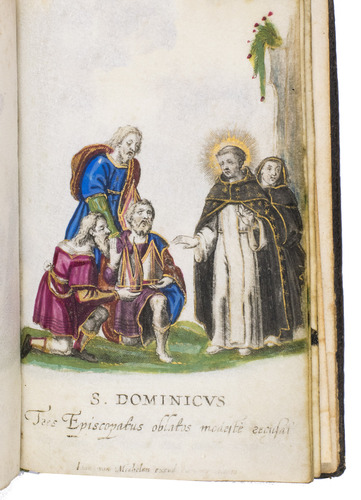 S. DOMINICVS
Tres Episcopatus oblatos modeste recusat
Ioan van Mechelen excud.